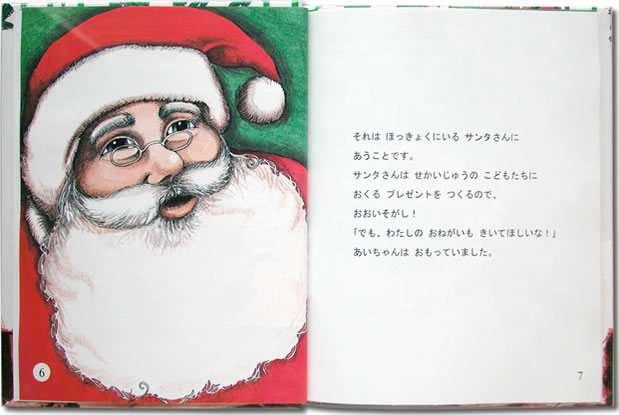 それは ほっきょくにいる サンタさんに
あうことです。
サンタさんは せかいじゅうの こどもたちに
おくる プレゼントを つくるので、
おおいそがし！
「でも、わたしの おねがいも きいてほしいな！」
あいちゃんは おもっていました。
6
7